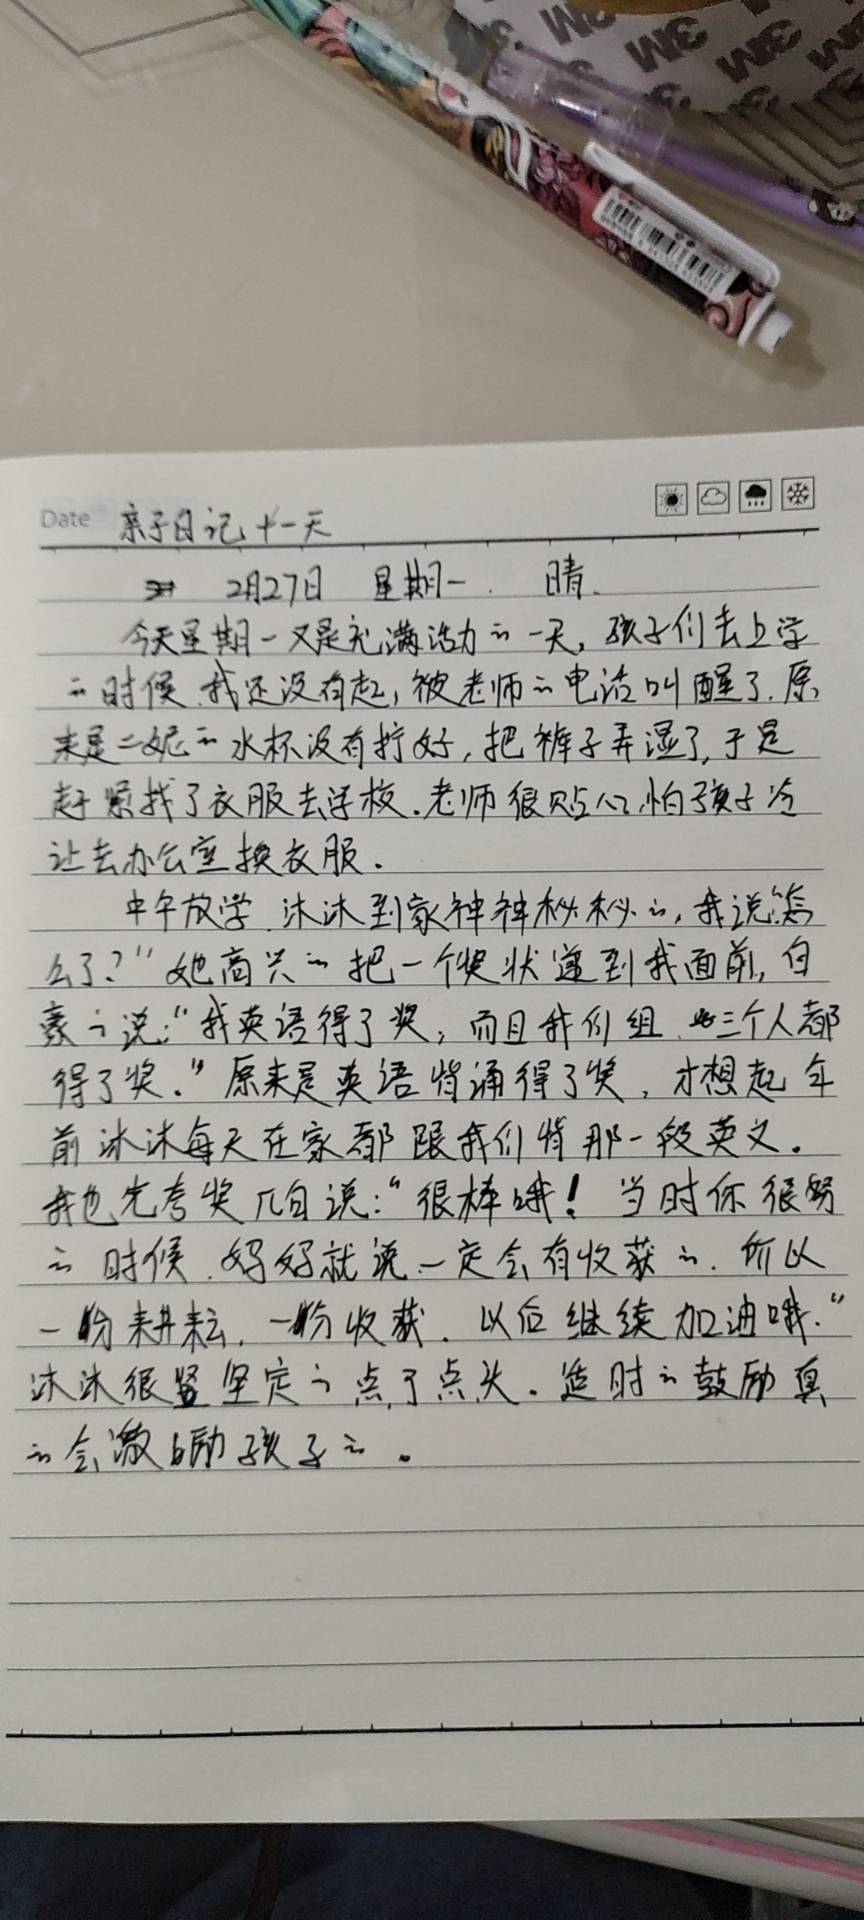 3M 3M 3M
3M 3M
Date 亲子日记十一天
2月27日 星期一. 晴.
今天星期一又是充满活力的一天，孩子们去上学
的时候.我还没有起，被老师的电话叫醒了.原
来是二妮的水杯没有拧好，把裤子弄湿了，于是
赶紧找了衣服去学校.老师很贴心怕孩子冷
让去办公室换衣服.
中午放学.沐沐到家神神秘秘的，我说“怎
么了？”她高兴的把一个奖状递到我面前，自
豪的说：“我英语得了奖，而且我们组 三个人都
得了奖.”原来是英语背诵得了奖，才想起年
前沐沐每天在家都跟我们背那一段英文.
我也先夸奖几句说：“很棒哦！当时你很努
的时候.妈妈就说一定会有收获的.所以
一份耕耘，一份收获.以后继续加油哦.”
沐沐很坚定的点了点头.适时的鼓励真
的会激励孩子的.